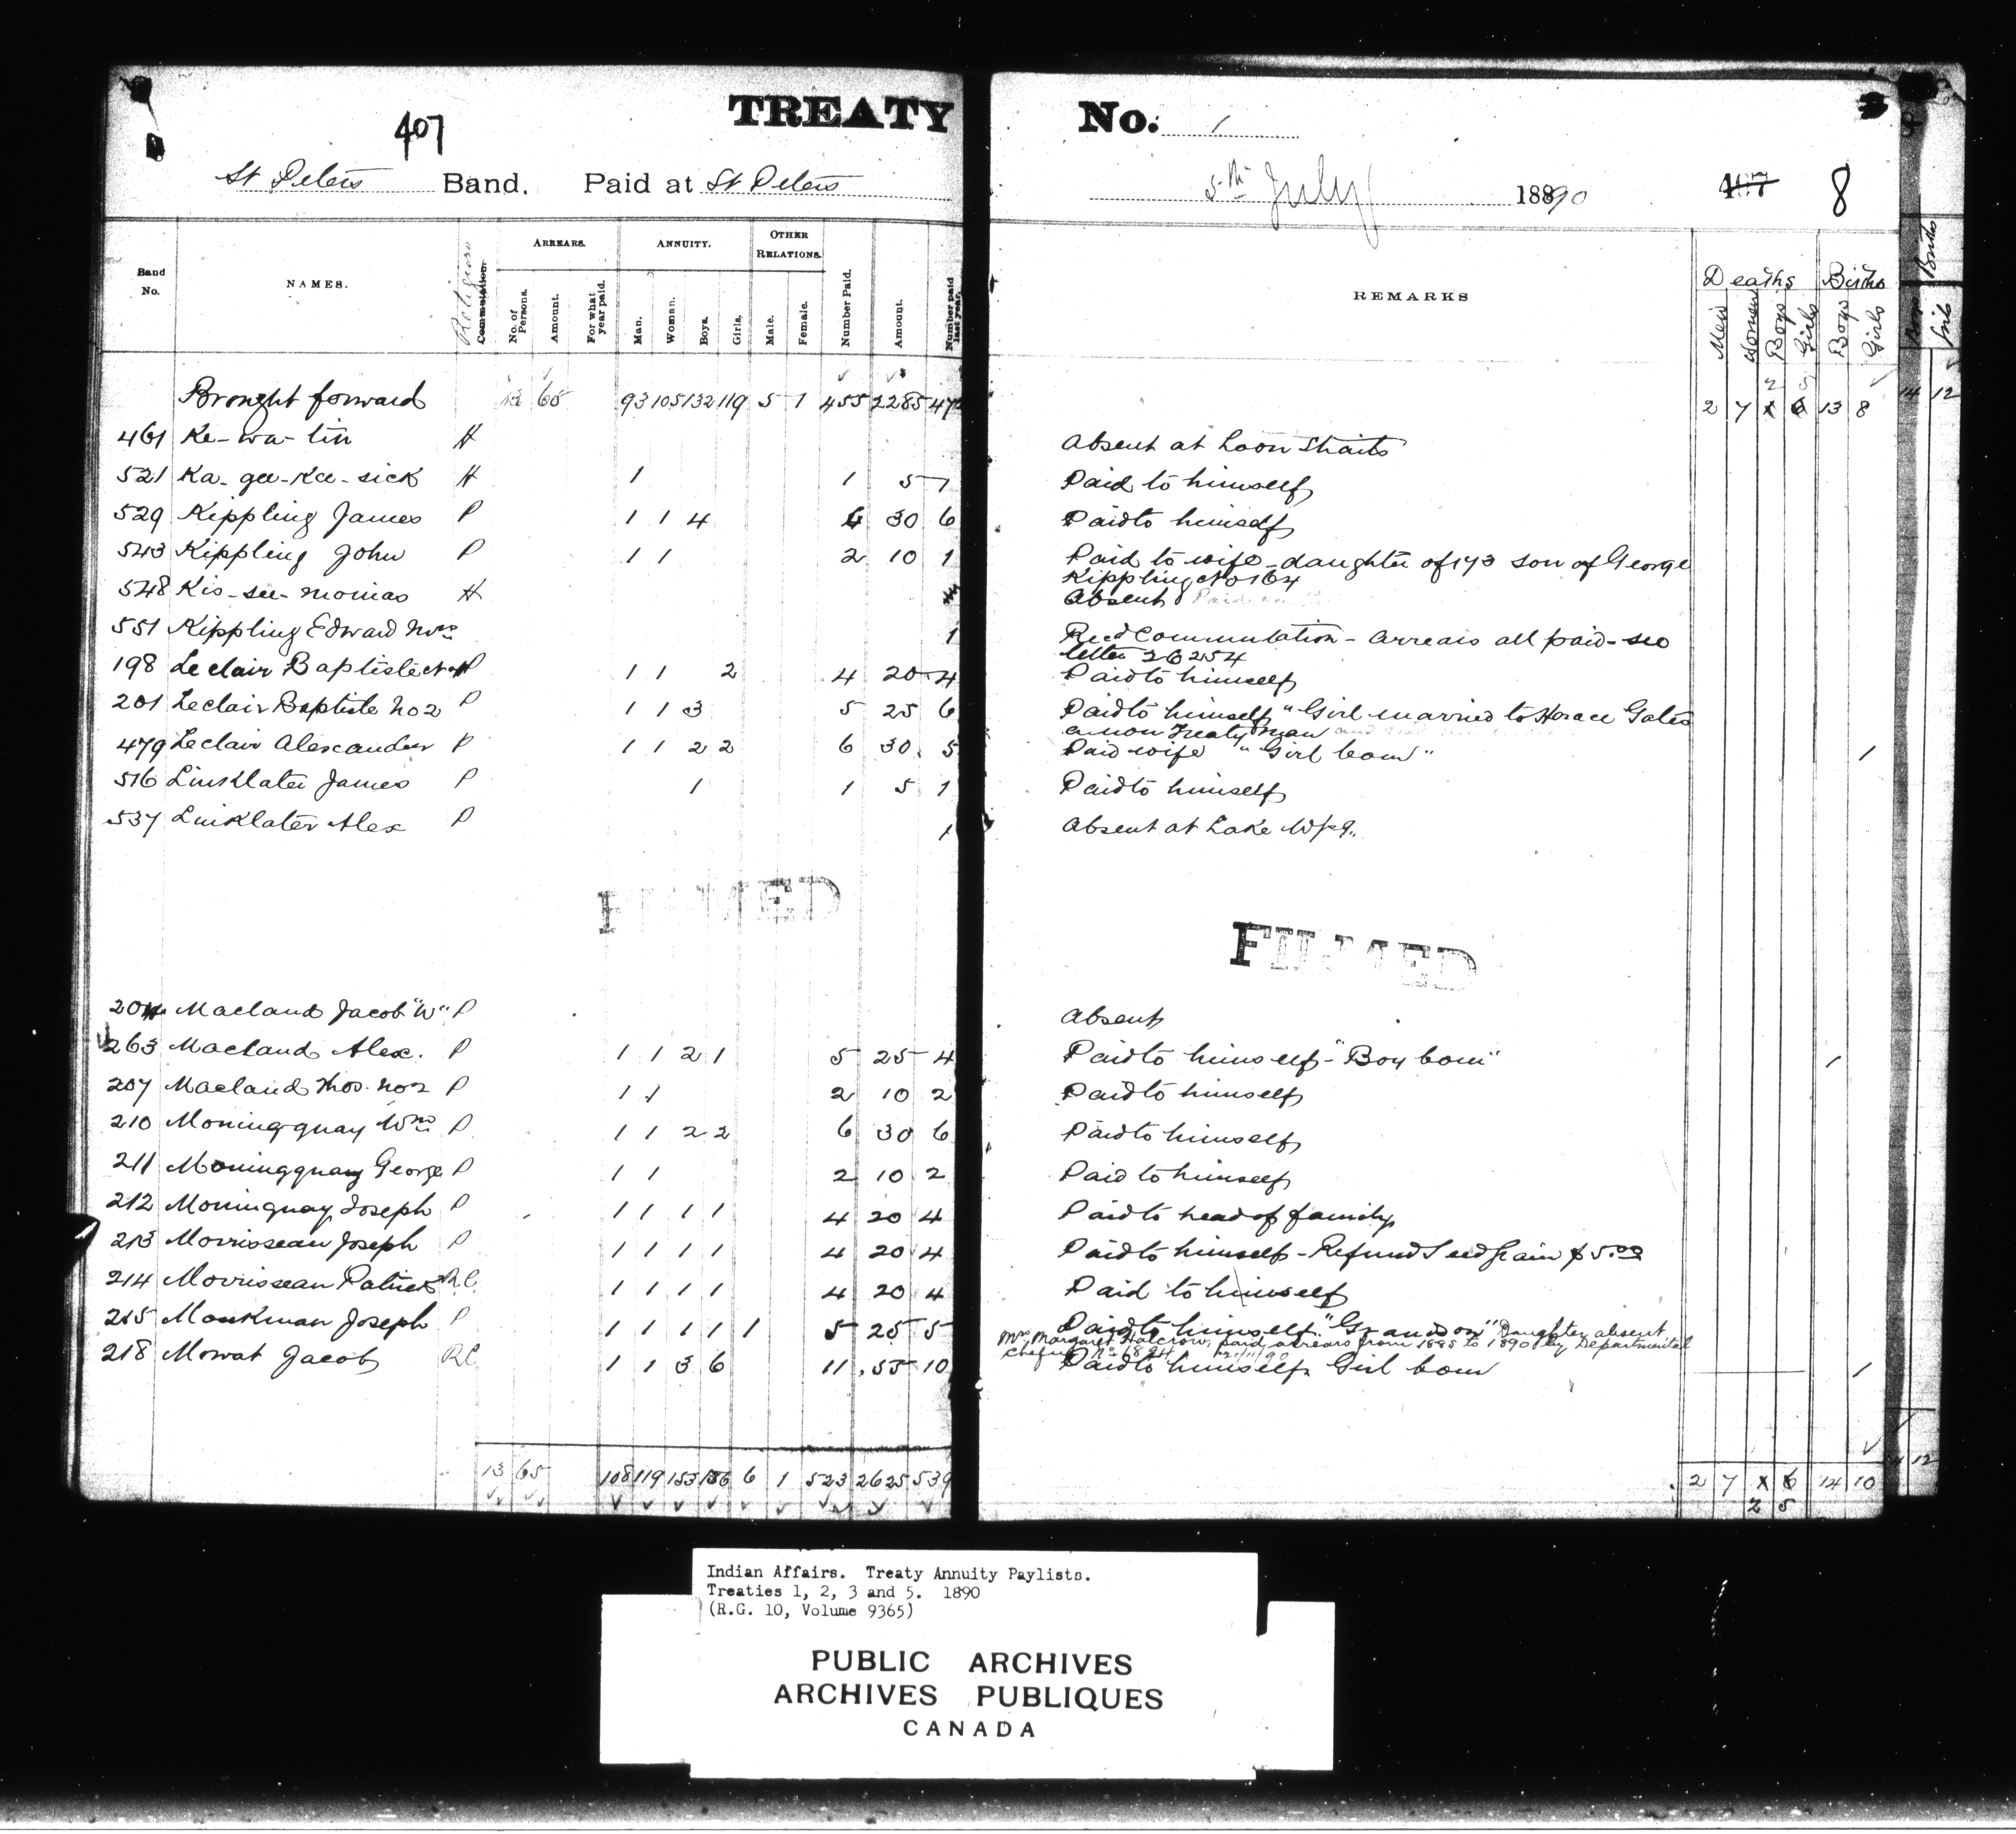 407
TREATY No. 1
St Peters Band. Paid at St Peters 5th July 1890 407 8
Band No. NAMES. Religion Commutation. ARREARS. No. of Persons. Amount. For what year paid. ANNUITY. Man. Woman. Boys. Girls. OTHER RELATIONS. Male. Female. Number Paid. Amount. Number paid last year. REMARKS Deaths Men Women Boys Girls Births Boys Girls
Brought forward 13 65 93 105 132 119 5 1 455 2285 2 7 2 5 13 8 14 12
461 Ke-wa-tin H Absent at Loon Straits
521 Ka-gee-Kee-sick H 1 1 5 1 Paid to himself
529 Kippling James P 1 1 4 6 30 6 Paid to himself
543 Kippling John P 1 1 2 10 1 Paid to wife - daughter of 173 son of George
Kippling No 164
548 Kis-see-monias H Absent Paid
551 Kippling Edward Mrs 1 Recd Commutation - arrears all paid - see
letter 26254
198 Leclair Baptiste P 1 1 2 4 20 4 Paid to himself
201 Leclair Baptiste No 2 P 1 1 3 5 25 6 Paid to himself "Girl married to Horace Gates
a non Treaty man and
479 Leclair Alexander P 1 1 2 2 6 30 5 Paid wife "Girl born" 1
516 Linklater James P 1 1 5 1 Paid to himself
537 Linklater Alex P 1 Absent at Lake Wpg.
FILMED FILMED
204 Macland Jacob "W" P Absent
263 Macland Alex. P 1 1 2 1 5 25 4 Paid to himself - "Boy born" 1
207 Macland Thos. No 2 P 1 1 2 10 2 Paid to himself
210 Moningquay Wm P 1 1 2 2 6 30 6 Paid to himself
211 Moningquay George P 1 1 2 10 2 Paid to himself
212 Moninquay Joseph P 1 1 1 1 4 20 4 Paid to head of family
213 Morrisseau Joseph P 1 1 1 1 4 20 4 Paid to himself - Refund Seed Grain $5.00
214 Morrisseau Patrick R.C. 1 1 1 1 4 20 4 Paid to himself
215 Monkman Joseph P 1 1 1 1 1 5 25 5 Paid to himself "Grandson" Daughter absent
Mrs Margaret Halcrow, paid arrears from 1885 to 1890 by Departmental
cheque No 1894 21/11/90
218 Mowat Jacob RC 1 1 3 6 11 55 10 Paid to himself Girl born 1
13 65 108 119 153 136 6 1 523 2625 539 2 7 6 14 10 12
2 5
Indian Affairs. Treaty Annuity Paylists.
Treaties 1, 2, 3 and 5. 1890
(R.G. 10, Volume 9365)
PUBLIC ARCHIVES
ARCHIVES PUBLIQUES
CANADA